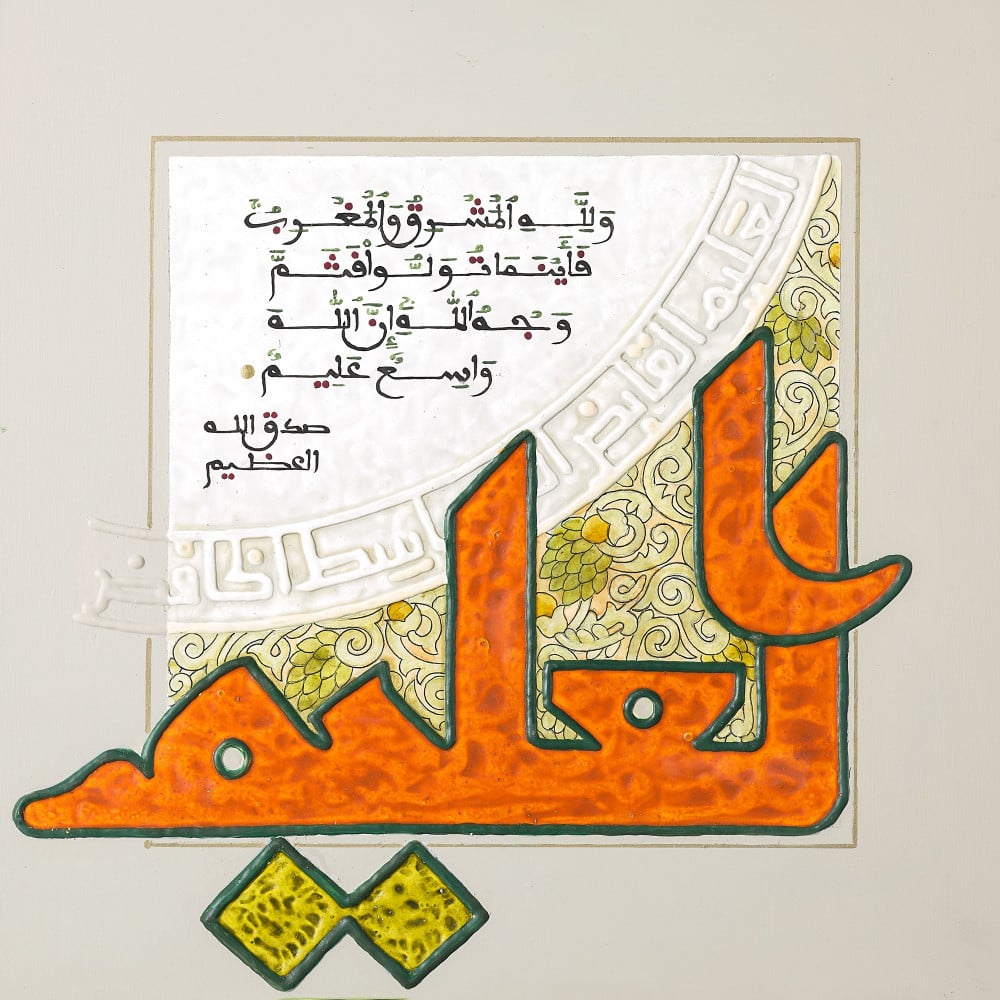 وَلِلَّهِ ٱلْمَشْرِقُ وَٱلْمَغْرِبُ ۚ
فَأَيْنَمَا تُوَلُّوا۟ فَثَمَّ
وَجْهُ ٱللَّهِ ۚ إِنَّ ٱللَّهَ
وَاسِعٌ عَلِيمٌ
صدق الله
العظيم
العليم القابض الباسط الخافض
العليم